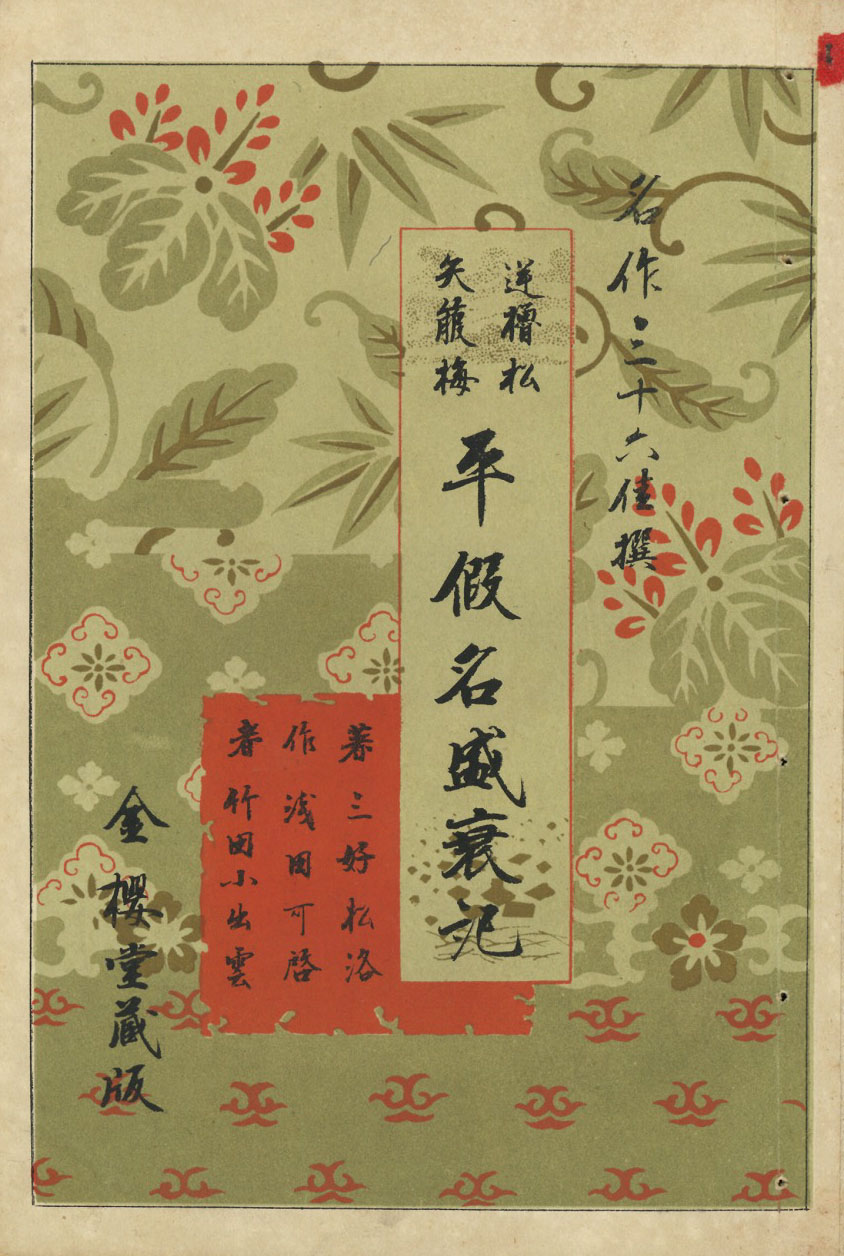 名作三十六佳撰
逆櫓松
矢箙梅
平假名盛衰記
著 三好松洛
作 浅田可啓
者 竹田小出雲
金櫻堂蔵版